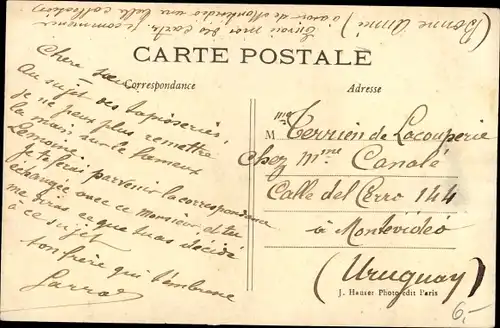 (Bonne Année)
Envoi moi des cartes, je commence
à avoir de Montévidéo une belle collection
CARTE POSTALE
Correspondance
Adresse
Chère sœur
Au sujet des tapisseries,
je ne peux plus remettre
la main sur le fameux
Lemoine.
Je te ferai parvenir la correspondance
échangée avec ce Monsieur, et tu
me diras ce que tu as décidé
à ce sujet
ton frère qui t'embrasse
Mme Terrien de Lacouperie
Chez Mme Canalé
Calle del Cerro 144
à Montévidéo
(Uruguay)
J. Hauser Photo-édit Paris
6-